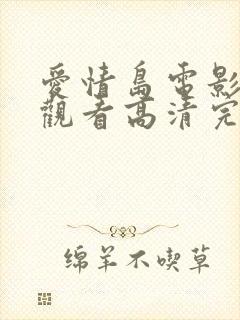 愛情島電影
觀看高清完
绵羊不喫草